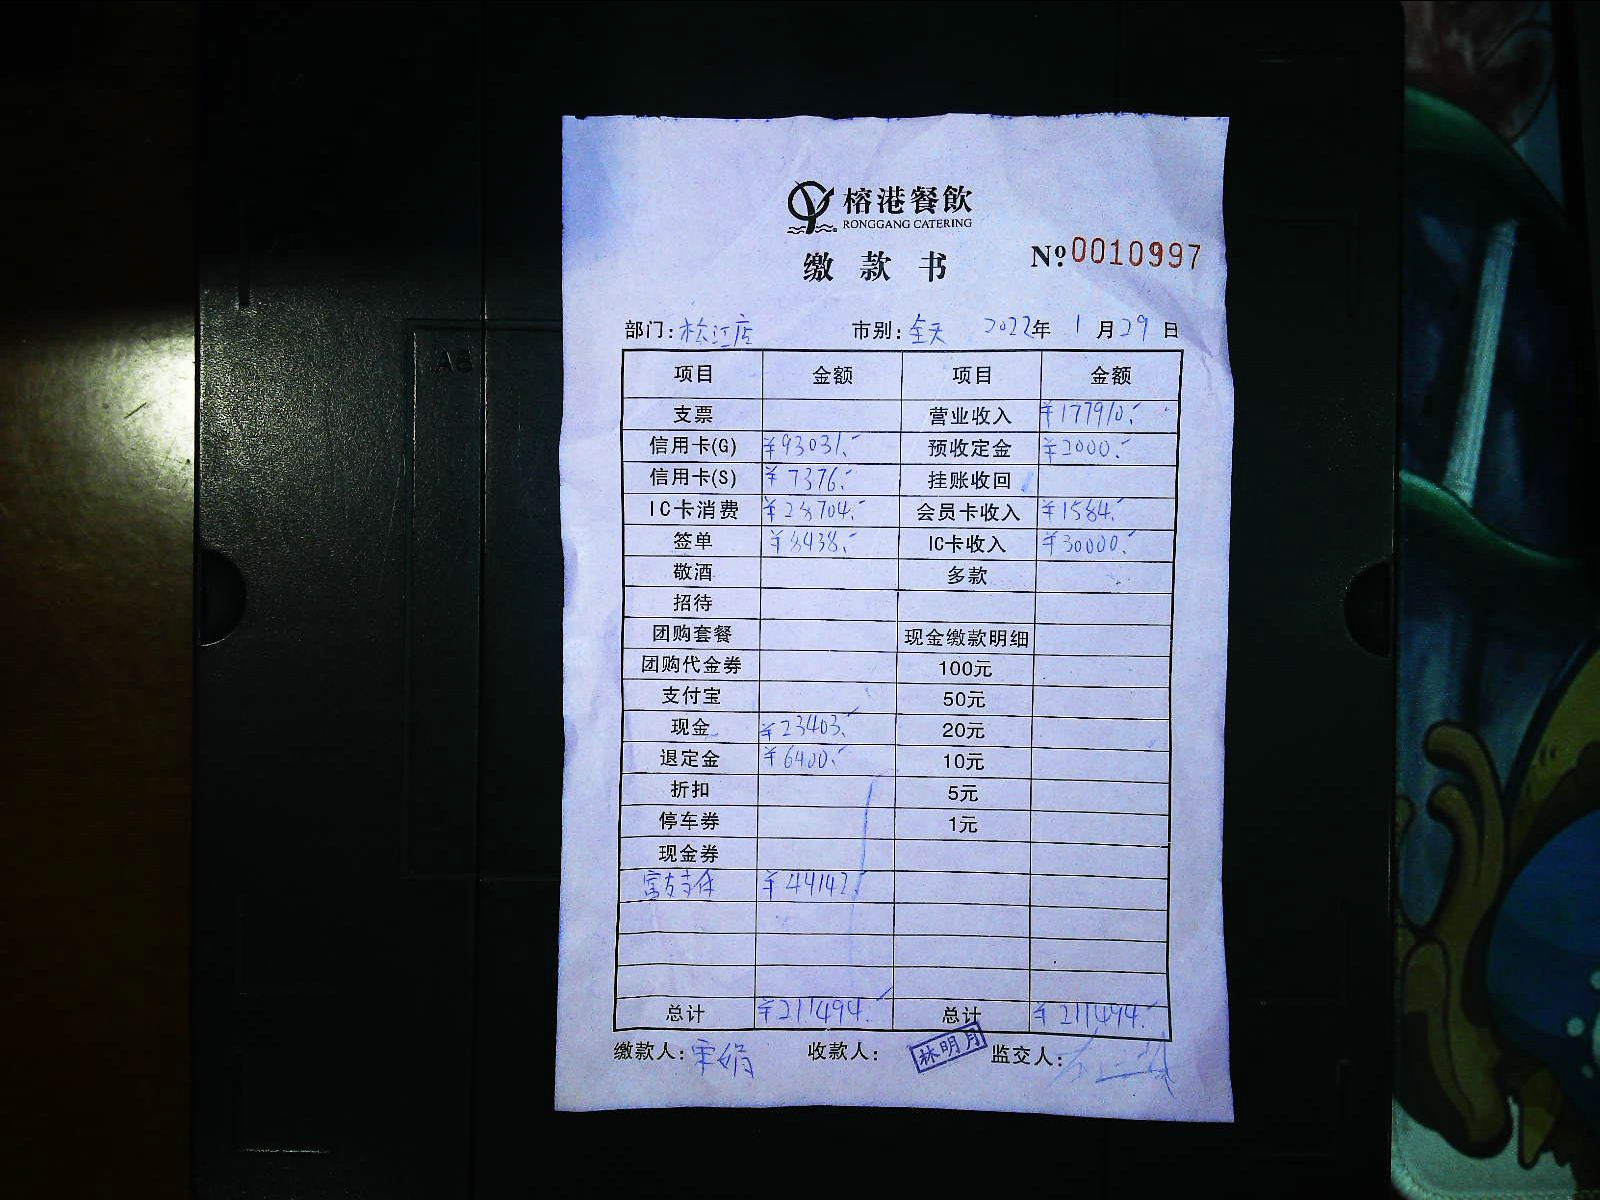 榕港餐飲
RONGGANG CATERING
缴款书 Nº 0010997
部门：松江店 市别：全天 2022年 1月29日
项目 金额 项目 金额
支票 营业收入 ¥177910.-
信用卡(G) ¥93031.- 预收定金 ¥2000.-
信用卡(S) ¥7376.- 挂账收回
IC卡消费 ¥28704.- 会员卡收入 ¥1584.-
签单 ¥8438.- IC卡收入 ¥30000.-
敬酒 多款
招待
团购套餐 现金缴款明细
团购代金券 100元
支付宝 50元
现金 ¥23403.- 20元
退定金 ¥6400.- 10元
折扣 5元
停车券 1元
现金券
富友支付 ¥44142.-
总计 ¥211494.- 总计 ¥211494.-
缴款人：宋娟 收款人：林明月 监交人：